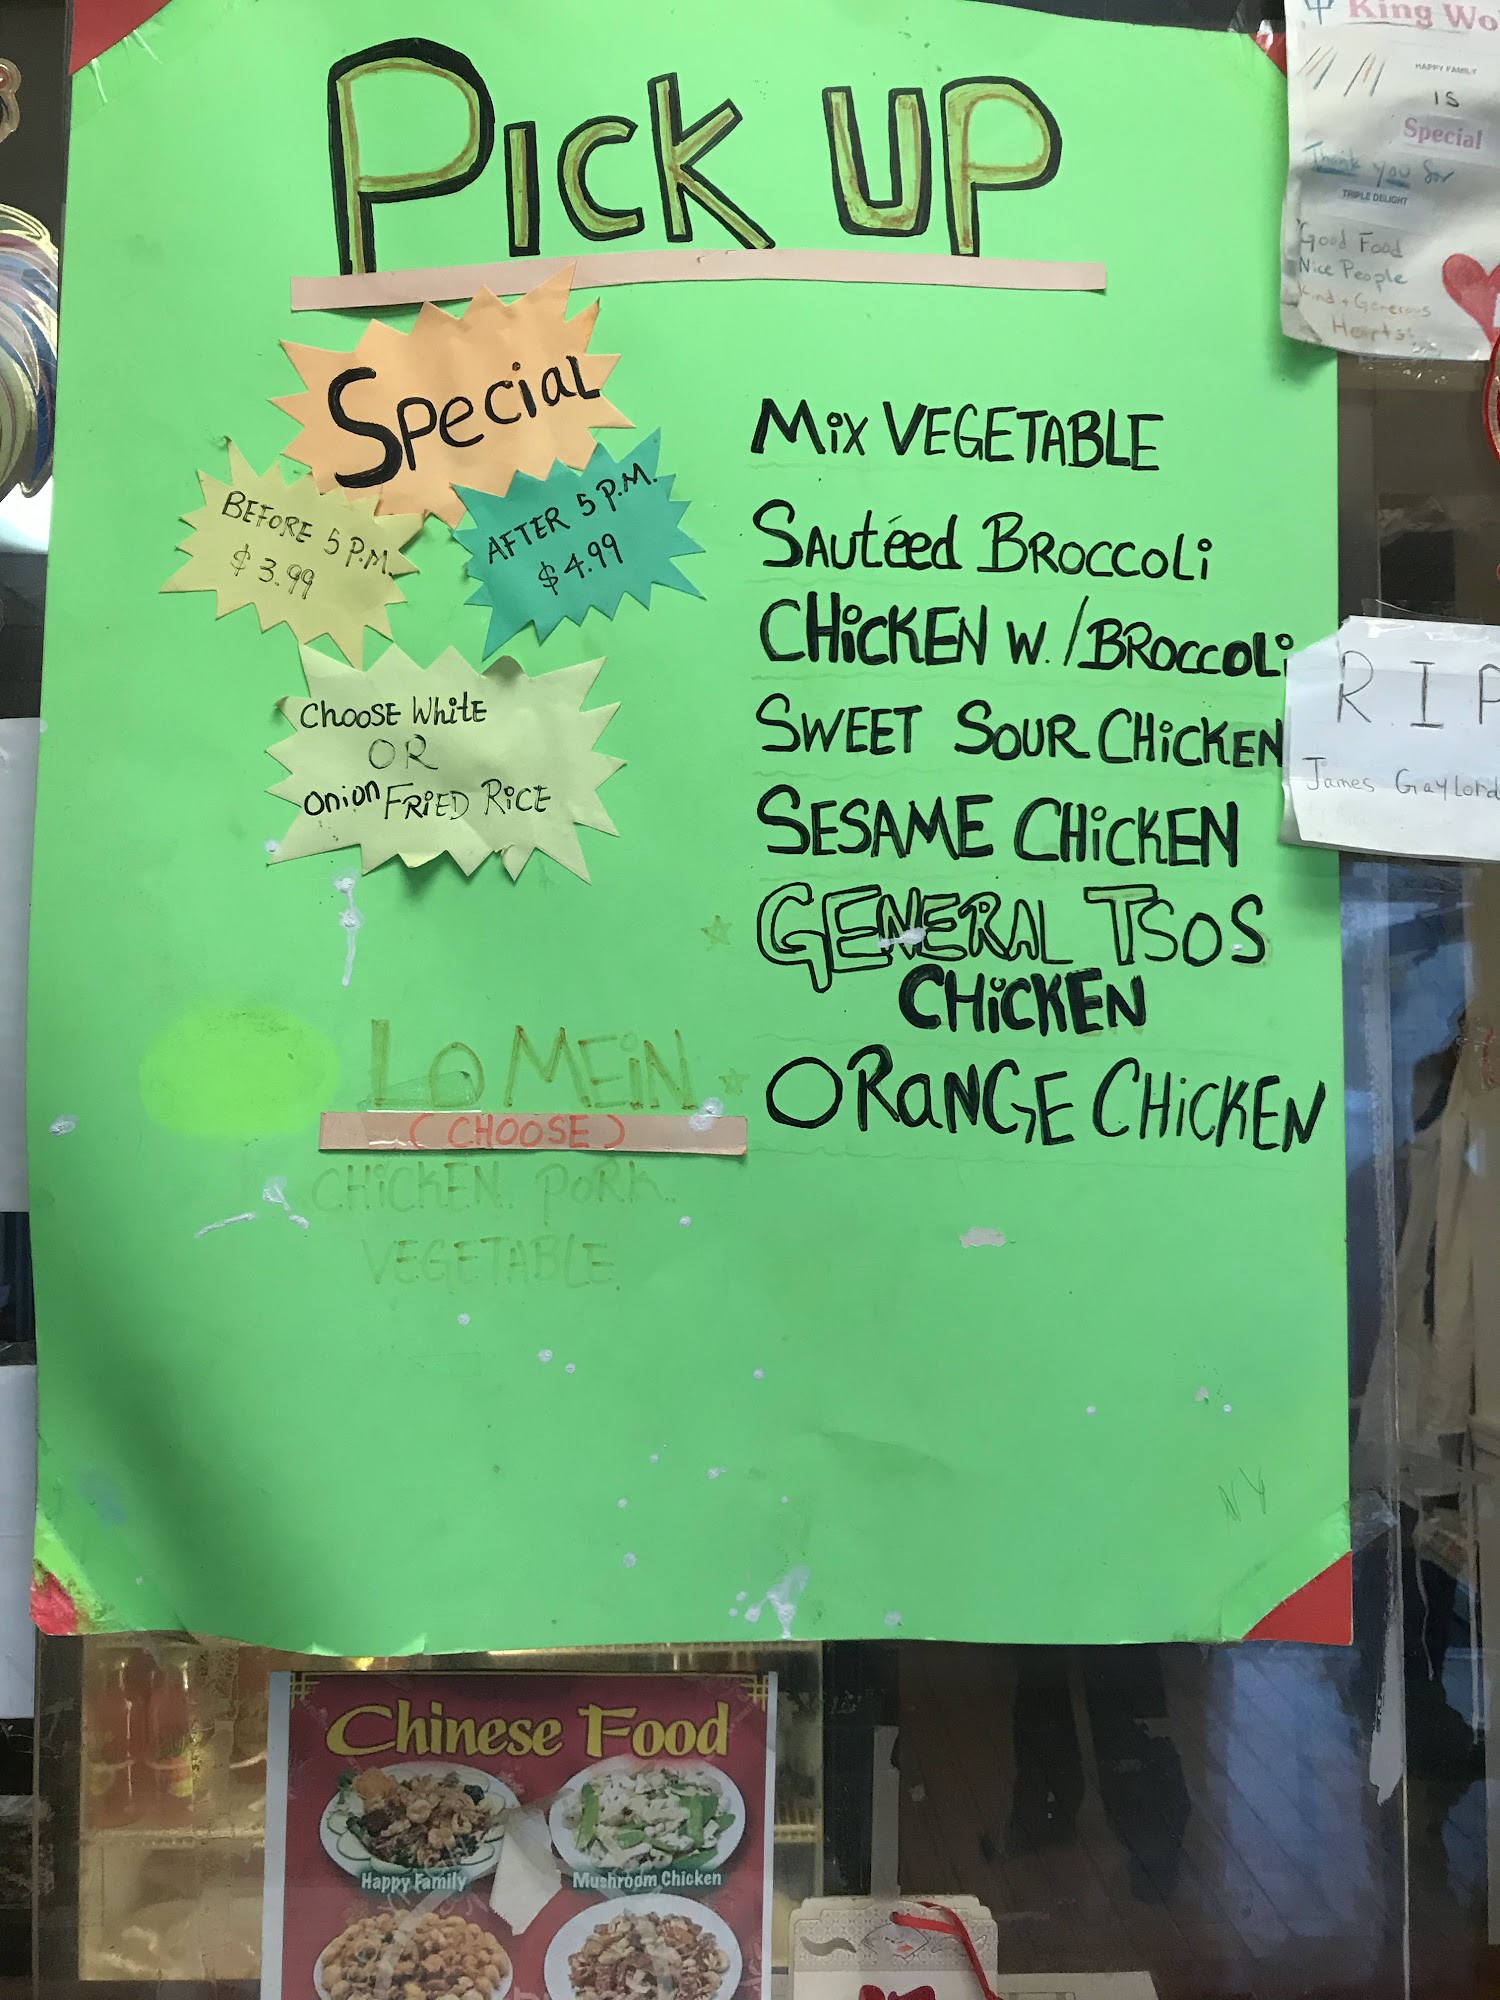 Pick UP
Special
BEFORE 5 P.M.
$3.99
AFTER 5 P.M.
$4.99
CHOOSE WHITE
OR
Onion FRIED RICE
Mix VEGETABLE
Sautéed BROCCOLi
CHiCKEN W./BROCCOLi
SWEET SOUR CHiCKEN
SESAME CHiCKEN
GENERAL TSOS
CHiCKEN
ORANGE CHiCKEN
LO MEiN
(CHOOSE)
CHiCKEN. PORK.
VEGETABLE
King Wo
HAPPY FAMILY
IS
Special
Thank you for
TRIPLE DELIGHT
Good Food
Nice People
Kind + Generous
Hearts
R.I.P
James Gaylord
Chinese Food
Happy Family
Mushroom Chicken